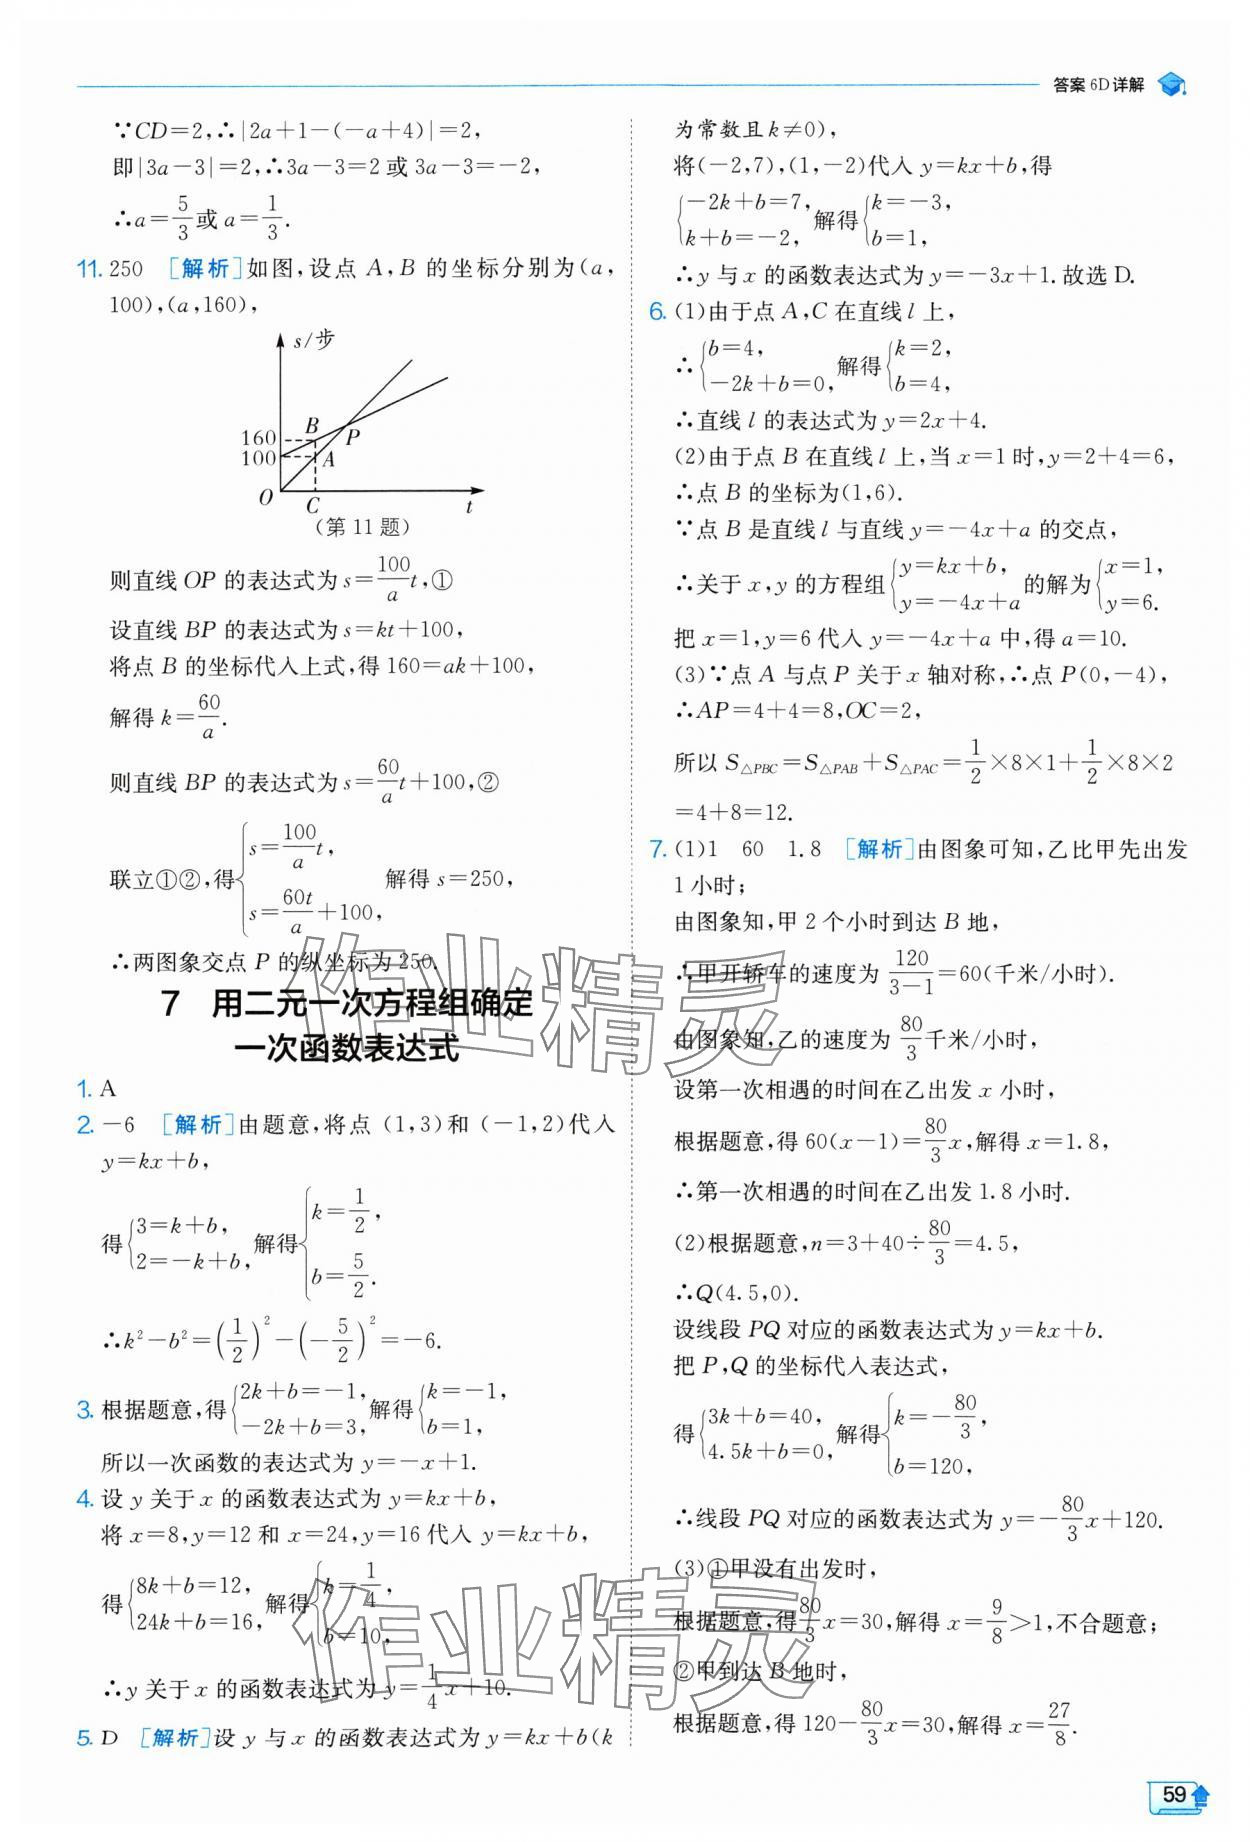 答案 6D详解
∵CD=2,∴|2a+1-(-a+4)|=2,
即|3a-3|=2,∴3a-3=2或3a-3=-2,
∴a=5/3或a=1/3.
11. 250 [解析]如图,设点A,B的坐标分别为(a,
100),(a,160),
s/步
B
160
P
100
A
O
C
t
(第11题)
则直线OP的表达式为s=100/a t,①
设直线BP的表达式为s=kt+100,
将点B的坐标代入上式,得160=ak+100,
解得k=60/a.
则直线BP的表达式为s=60/a t+100,②
联立①②,得{s=100/a t, s=60t/a+100, 解得s=250,
∴两图象交点P的纵坐标为250.
7 用二元一次方程组确定
一次函数表达式
1. A
2. -6 [解析]由题意,将点(1,3)和(-1,2)代入
y=kx+b,
得{3=k+b, 2=-k+b, 解得{k=1/2, b=5/2.
∴k²-b²=(1/2)²-(-5/2)²=-6.
3. 根据题意,得{2k+b=-1, -2k+b=3, 解得{k=-1, b=1,
所以一次函数的表达式为y=-x+1.
4. 设y关于x的函数表达式为y=kx+b,
将x=8,y=12和x=24,y=16代入y=kx+b,
得{8k+b=12, 24k+b=16, 解得{k=1/4, b=10,
∴y关于x的函数表达式为y=1/4 x+10.
5. D [解析]设y与x的函数表达式为y=kx+b(k
为常数且k≠0),
将(-2,7),(1,-2)代入y=kx+b,得
{-2k+b=7, k+b=-2, 解得{k=-3, b=1,
∴y与x的函数表达式为y=-3x+1.故选D.
6. (1)由于点A,C在直线l上,
∴{b=4, -2k+b=0, 解得{k=2, b=4,
∴直线l的表达式为y=2x+4.
(2)由于点B在直线l上,当x=1时,y=2+4=6,
∴点B的坐标为(1,6).
∵点B是直线l与直线y=-4x+a的交点,
∴关于x,y的方程组{y=kx+b, y=-4x+a的解为{x=1, y=6.
把x=1,y=6代入y=-4x+a中,得a=10.
(3)∵点A与点P关于x轴对称,∴点P(0,-4),
∴AP=4+4=8,OC=2,
所以S△PBC=S△PAB+S△PAC=1/2×8×1+1/2×8×2
=4+8=12.
7. (1)1 60 1.8 [解析]由图象可知,乙比甲先出发
1小时;
由图象知,甲2个小时到达B地,
∴甲开轿车的速度为120/(3-1)=60(千米/小时).
由图象知,乙的速度为80/3千米/小时,
设第一次相遇的时间在乙出发x小时,
根据题意,得60(x-1)=80/3 x,解得x=1.8,
∴第一次相遇的时间在乙出发1.8小时.
(2)根据题意,n=3+40÷80/3=4.5,
∴Q(4.5,0).
设线段PQ对应的函数表达式为y=kx+b.
把P,Q的坐标代入表达式,
得{3k+b=40, 4.5k+b=0, 解得{k=-80/3, b=120,
∴线段PQ对应的函数表达式为y=-80/3 x+120.
(3)①甲没有出发时,
根据题意,得80/3 x=30,解得x=9/8>1,不合题意;
②甲到达B地时,
根据题意,得120-80/3 x=30,解得x=27/8.
作业精灵
作业精灵
59